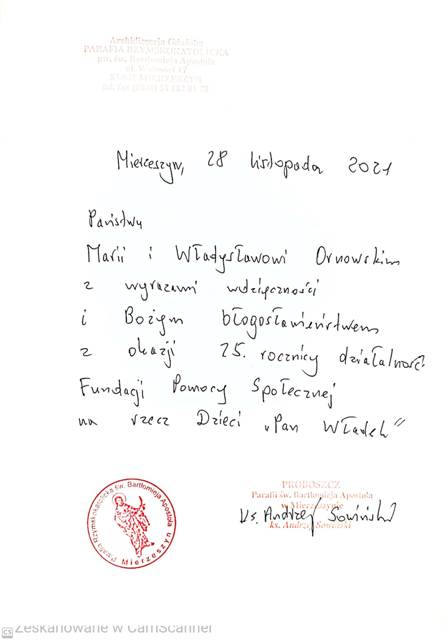 Archidiecezja Gdańska
PARAFIA RZYMSKOKATOLICKA
pw. św. Bartłomieja Apostoła
MIERZESZYN
Mierzeszyn, 28 listopada 2021
Państwu
Marii i Władysławowi Ornowskim
z wyrazami wdzięczności
i Bożym błogosławieństwem
z okazji 25. rocznicy działalności
Fundacji Pomocy Społecznej
na rzecz Dzieci „Pan Władek"
Parafia Rzymskokatolicka św. Bartłomieja Apostoła
Mierzeszyn
PROBOSZCZ
Parafii św. Bartłomieja Apostoła
w Mierzeszynie
ks. Andrzej Sowiński
Ks. Andrzej Sowiński
CS Zeskanowane w CamScanner